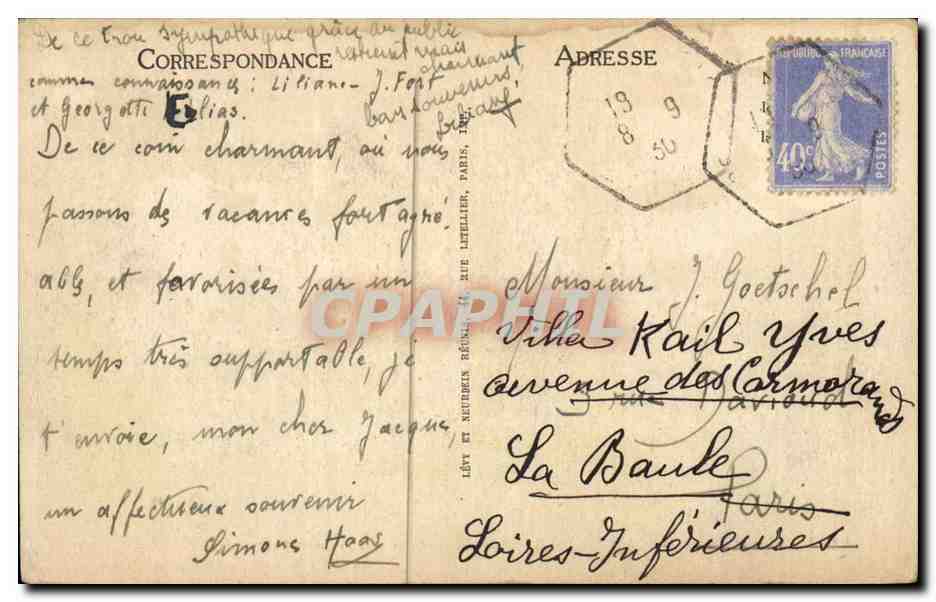 De ce trou sympathique grâce au public
CORRESPONDANCE
ADRESSE
charmant
comme connaissances : Liliane - J. Fort
et Georgette Elias.
bons souvenirs,
De ce coin charmant, où nous
passons des vacances fort agré-
able, et favorisées par un
temps très supportable, je
t'envoie, mon cher Jacques,
un affectueux souvenir
Simone Haas
LÉVY ET NEURDEIN RÉUNIS, 44, RUE LETELLIER, PARIS, IMP.
REPUBLIQUE FRANÇAISE
40c
POSTES
19 9
8 30
Monsieur J. Goetschel
Villa Kail Yves
avenue des Cormorands
3 rue Davioud
La Baule
Paris
Loires-Inférieures
CPAPHIL